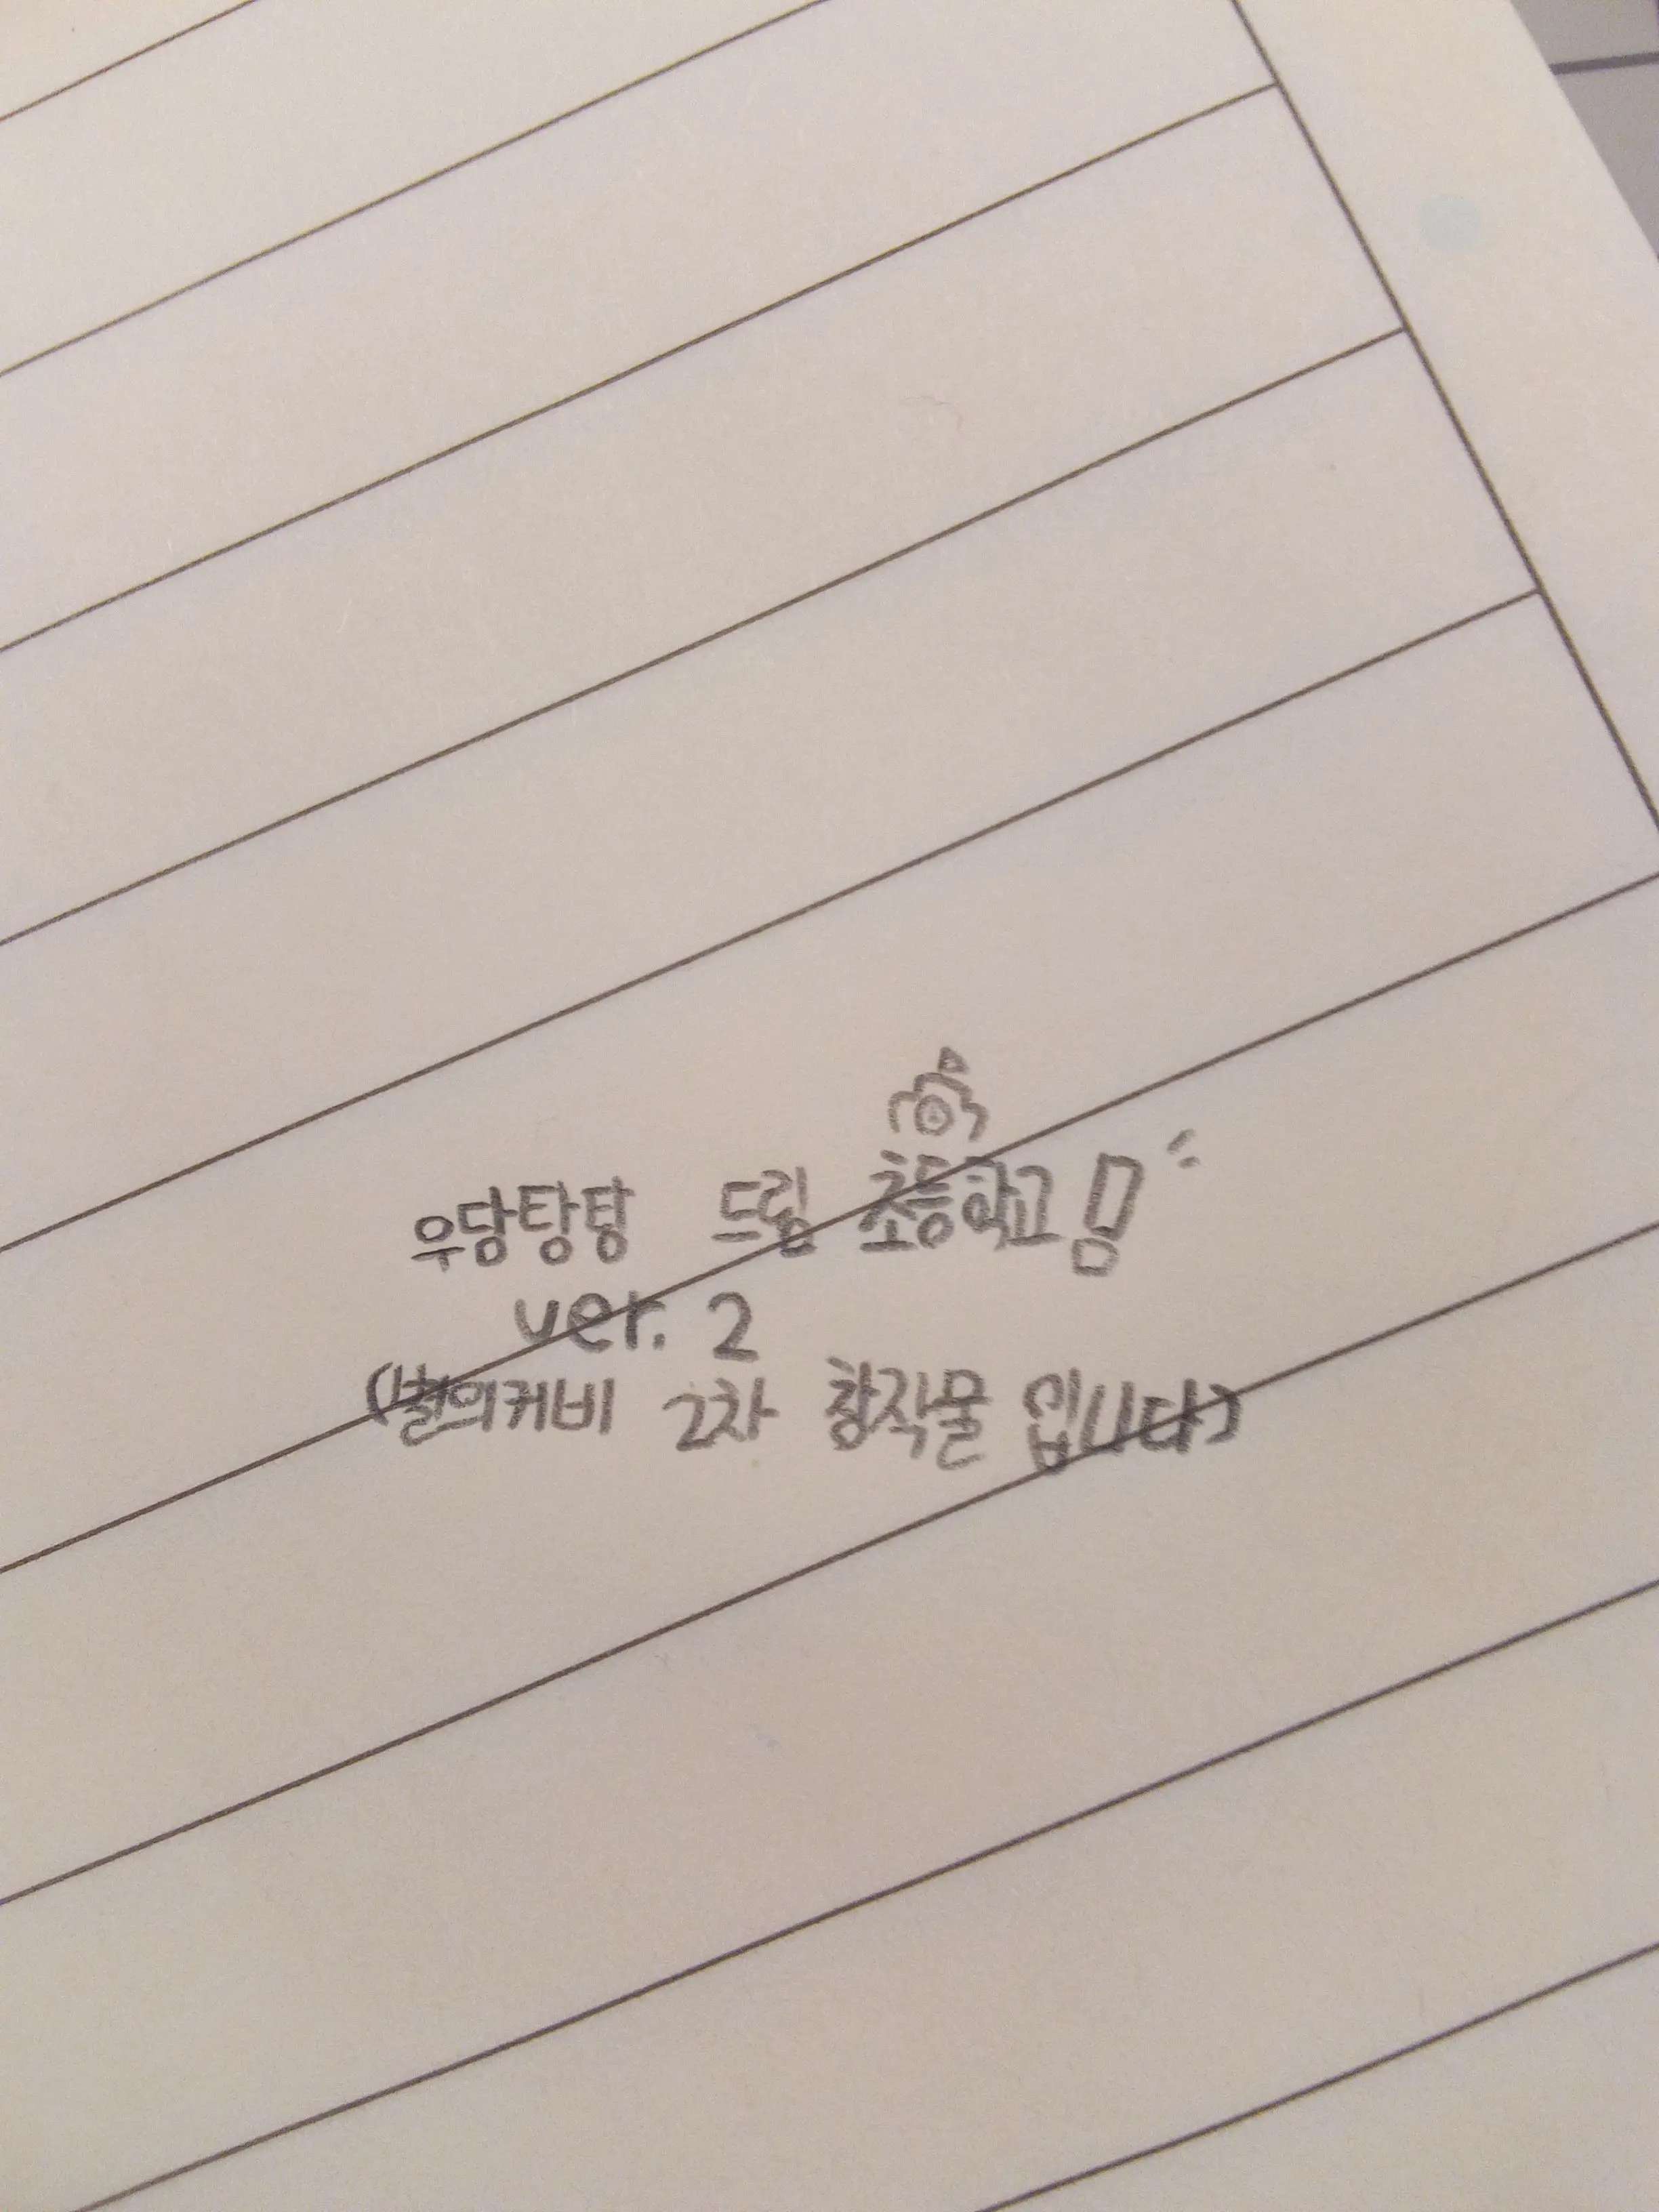 우당탕탕 드림 초등학교!
ver. 2
(별의커비 2차 창작물 입니다)